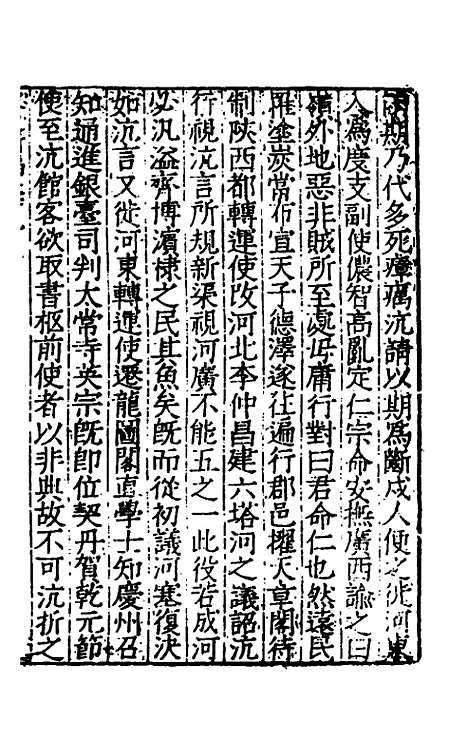 期乃代多死瘴癘沆請以期爲斷戍人便之徙河東
入爲度支副使儂智高亂定仁宗命安撫廣西諭之曰
嶺外地惡非賊所至處毋庸行對曰君命仁也然遠民
罹塗炭當布宣天子德澤遂往遍行郡邑擢天章閣待
制陝西都轉運使改河北李仲昌建六塔河之議詔沆
行視沆言所規新渠視河廣不能五之一此役若成河
必汎溢齊博濱棣之民其魚矣旣而從初議河塞復決
如沆言又徙河東轉運使遷龍圖閣直學士知慶州召
知通進銀臺司判太常寺英宗旣卽位契丹賀乾元節
使至沆館客欲取書柩前使者以非典故不可沆折之